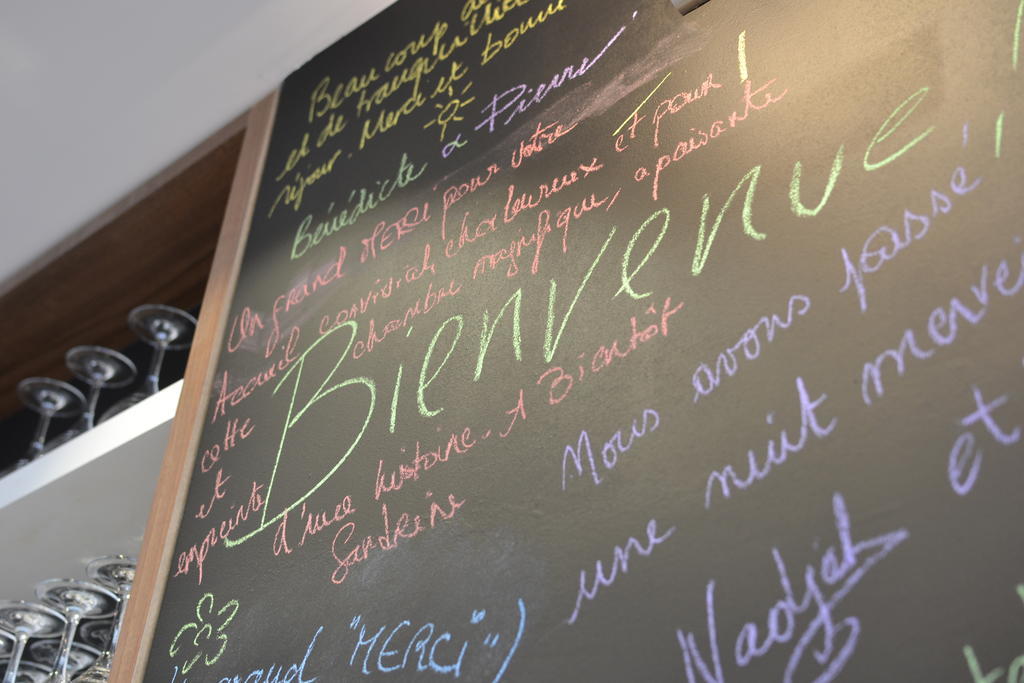 Beaucoup de
et de tranquillité
séjour. Merci et bonne
Bénédicte & Pierre
Un grand MERCi pour votre
Accueil convivial, chaleureux et pour !
cette chambre magnifique, apaisante
et
empreinte d'une histoire. A Bientôt
Sandrine
Bienvenue !
Nous avons passé
une nuit
et
Nadjah
"MERCi")